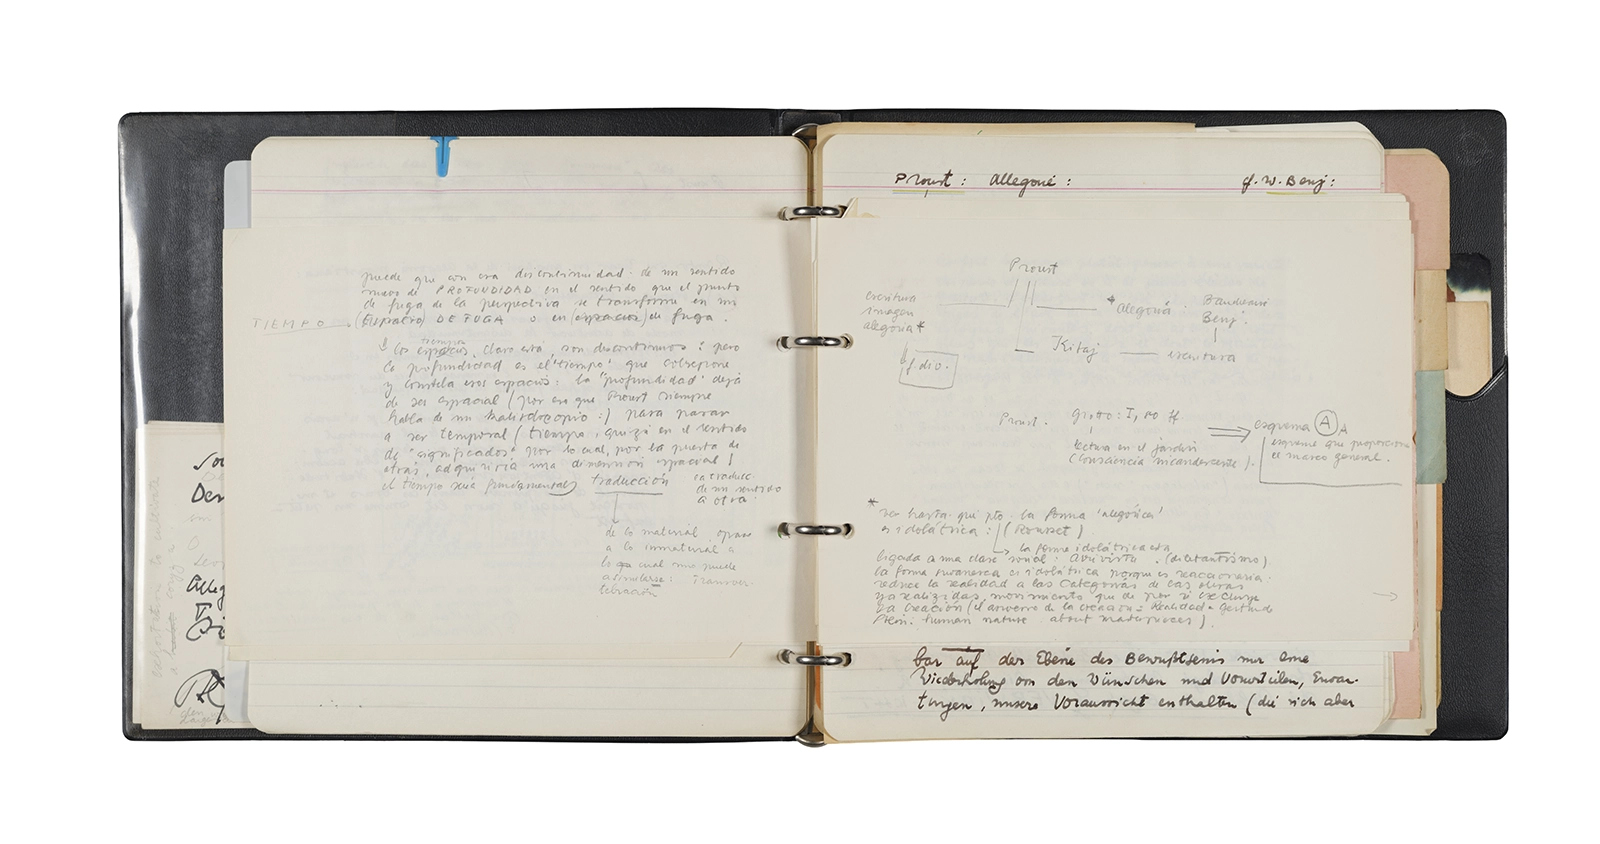 puede que con esa discontinuidad de un sentido
nuevo de PROFUNDIDAD en el sentido que el punto
de fuga de la perspectiva se transforme en un
TIEMPO (ESPACIO) DE FUGA o en (espacios) de fuga.
tiempos
los espacios, claro está, son discontinuos: pero
la profundidad es el "tiempo" que
y constela esos espacios: la "profundidad" deja
de ser espacial (por eso que Proust siempre
habla de un kaleidoscopio:) para pasar
a ser temporal (tiempo, quizá en el sentido
de "significados", por lo cual, por la puerta de
atrás, adquiriría una dimensión espacial)
el tiempo sería fundamental) traducción
se traduce
de un sentido
a otro.
de lo material, opaco
a lo inmaterial a
lo cual uno puede
asimilarse: Transver-
beración
Dem
Alleg
Proust: Allegorie: cf. W. Benj:
Proust
escritura
imagen
alegoría*
* alegoría: Baudelaire
Benj.
f. div.
Kitaj escritura
Proust. giotto: I, 80 ff
lectura en el jardín
(consciencia incandescente).
esquema A A
esquema que proporciona
el marco general.
* ver hasta qué pto. la forma 'alegórica'
es idolátrica: (Rousset)
la forma idolátrica está
ligada a una clase social (diletantismo).
la forma swanesca es idolátrica porque es reaccionaria:
reduce la realidad a las categorías de las obras
ya realizadas, movimiento que de por sí excluye
la creación (el de la creación = Realidad = Gertrude
Stein: human nature about masterpieces).
bar auf der Ebene des Bewußtseins nur eine
Wiederholung von den Wünschen und Vorurteilen, Erwar-
tungen, unsere Voraussicht enthalten (die sich aber